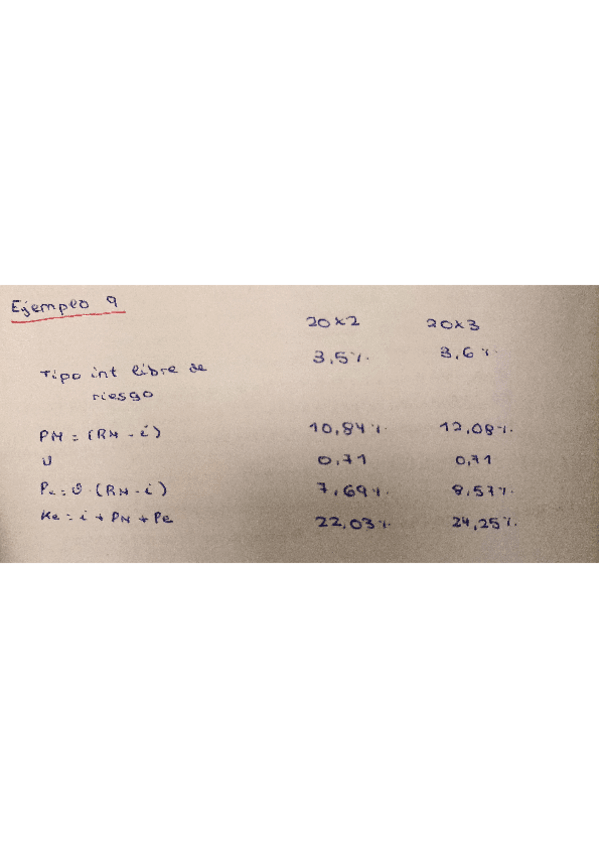 Ejemplo 9
20x2 20x3
Tipo int libre de 3,5% 3,6%
riesgo
PN = (RN - i) 10,84% 12,08%
υ 0,71 0,71
Pe = υ · (RN - i) 7,69% 8,57%
Ke = i + PN + Pe 22,03% 24,25%